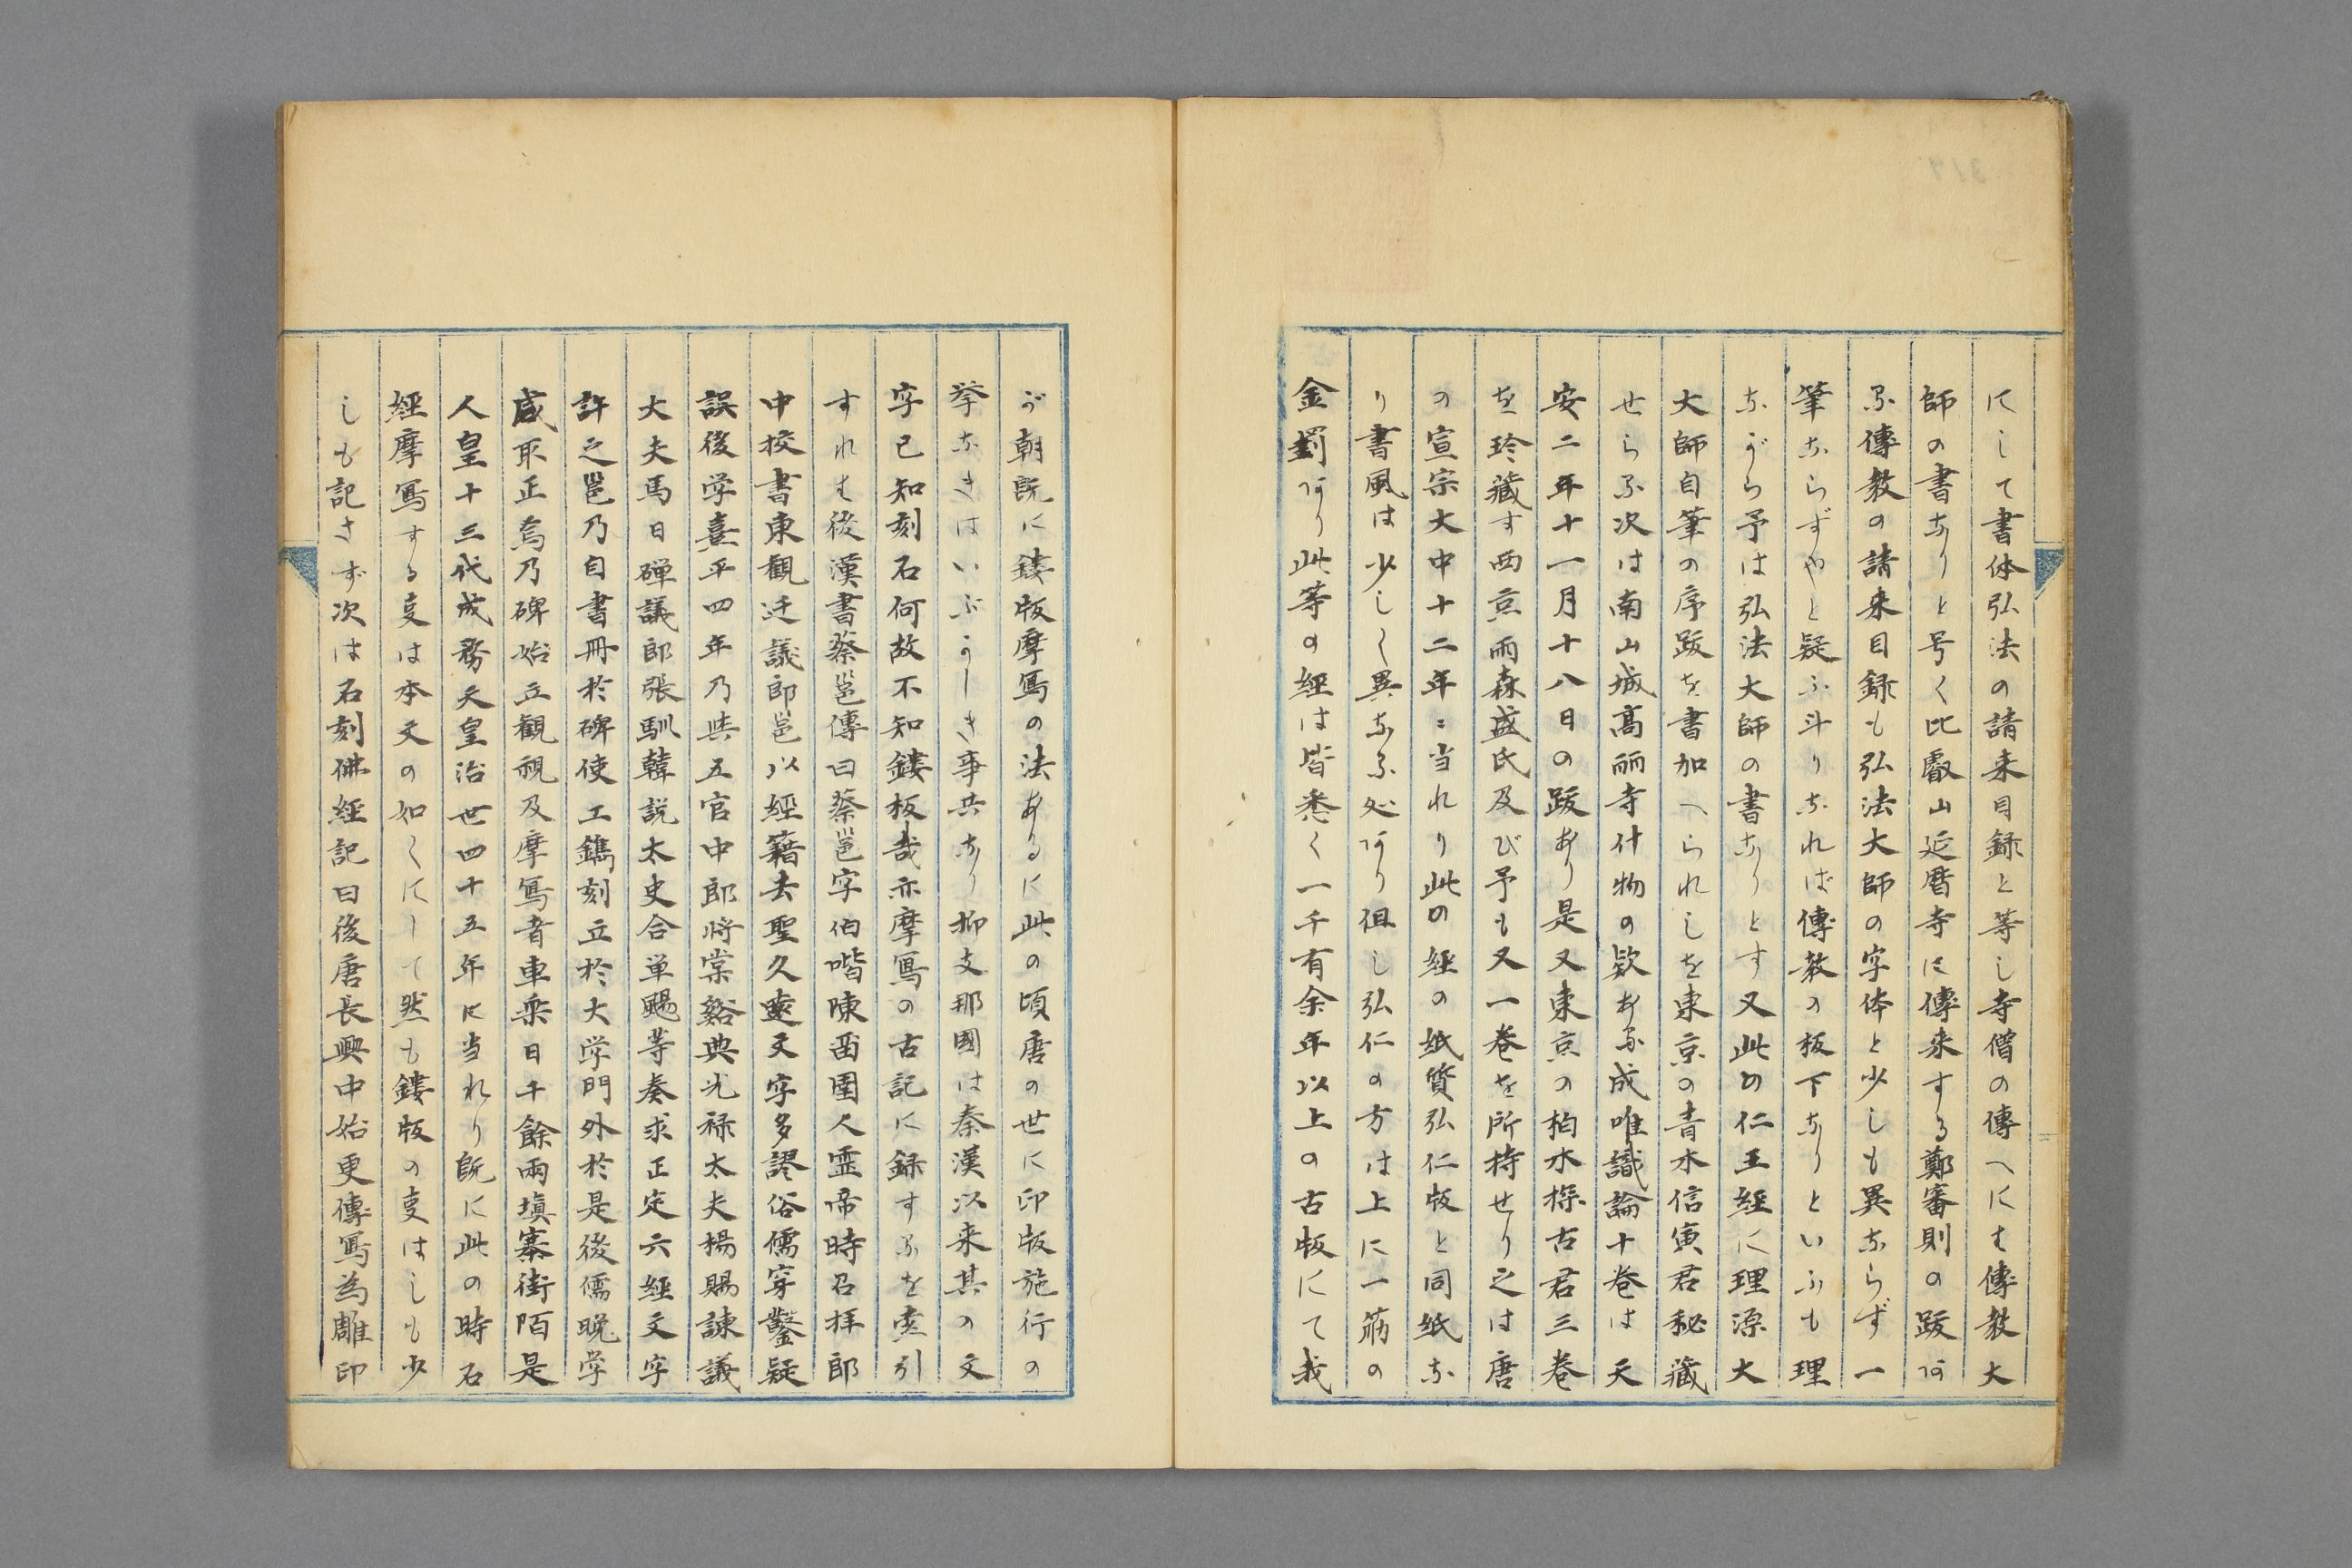 にして書体弘法の請来目録と等し寺僧の傳へにも傳教大
師の書なりと号く比叡山延暦寺に傳来する鄭審則の跋ある
る傳教の請来目録も弘法大師の字体と少しも異ならず一
筆ならずやと疑ふ斗りなれば傳教の板下なりといふも理
ながら予は弘法大師の書なりとす又此の仁王經に理源大
大師自筆の序跋を書加へられしを東京の青木信寅君秘藏
せらる次は南山城高麗寺什物の欵ある成唯識論十巻は天
安二年十一月十八日の跋あり是又東京の柏木探古君三巻
を珍藏す西京雨森盛氏及び予も又一巻を所持せり之は唐
の宣宗大中十二年ニ当れり此の經の紙質弘仁版と同紙な
り書風は少しく異なる処あり但し弘仁の方は上に一筋の
金罫あり此等の經は皆悉く一千有余年以上の古版にて我
が朝既に鏤版摩寫の法あるに此の頃唐の世に印版施行の
挙なきはいぶかしき事共なり抑支那國は秦漢以来其の文
字已知刻石何故不知鏤板哉亦摩寫の古記に録するを索引
すれも後漢書蔡邕傳曰蔡邕字伯喈陳畱圉人霊帝時召拝郎
中挍書東觀迁議郎邕以經籍去聖久遠文字多謬俗儒穿鑿疑
誤後学熹平四年乃與五官中郎將棠谿典光禄太夫楊賜諌議
大夫馬日磾議郎張馴韓説太史合単颺等奏求正定六經文字
許之邕乃自書冊於碑使工鐫刻立於大学門外於是後儒晩学
咸取正焉乃碑始立觀視及摩寫者車乗日千餘両塡塞街陌是
人皇十三代成務天皇治世四十五年に当れり既に此の時石
經摩寫する叓は本文の如くにして然も鏤版の叓はしも少
しも記さず次は石刻佛經記曰後唐長興中始更傳寫為雕印